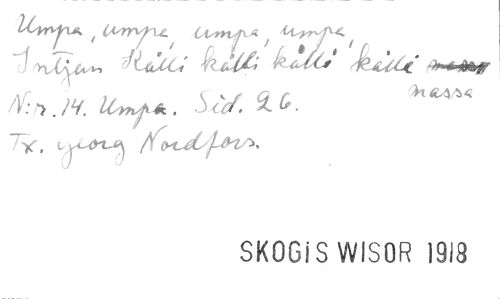 Umpa, umpa, umpa, umpa,
Intjan Kålli kålli kålli kålli
massa
N:r. 14. Umpa. Sid. 26.
Tx. georg Nordfors.
SKOGiS WISOR 1918